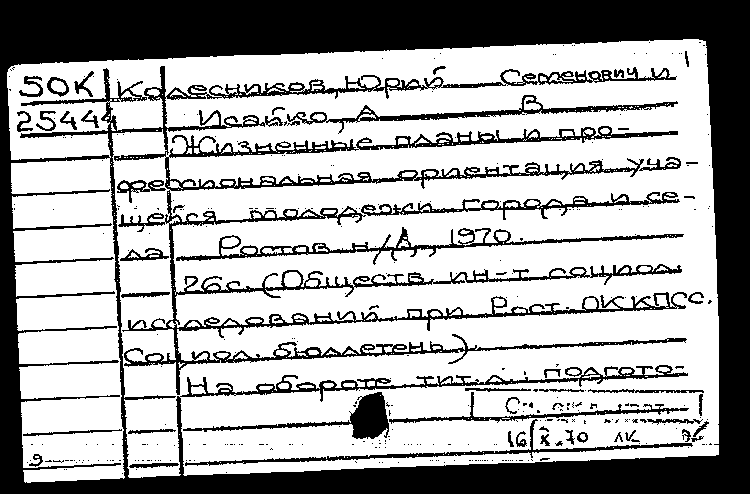 1
50К Колесников, Юрий Семенович и
25444 Исайко, А В
Жизненные планы и про-
фессиональная ориентация уча-
щейся молодежи города и се-
ла Ростов н/Д, 1970.
26с. (Обществ. ин-т социол.
исследований при Рост. ОК КПСС.
Социол. бюллетень).
На обороте тит. л.: подгото-
См.
16/X.70 ЛК
9